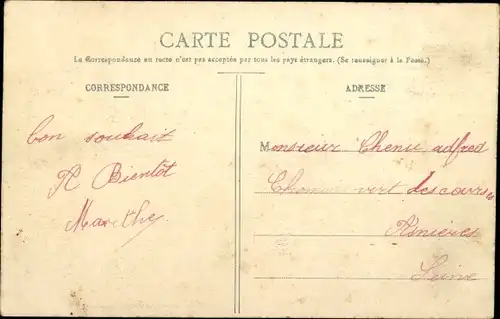 CARTE POSTALE
La Correspondance au recto n'est pas acceptée par tous les pays étrangers. (Se renseigner à la Poste.)
CORRESPONDANCE
ADRESSE
bon souhait
A Bientôt
Marthe
Monsieur Chenu adfred
vert des courses
Asnieres
Seine